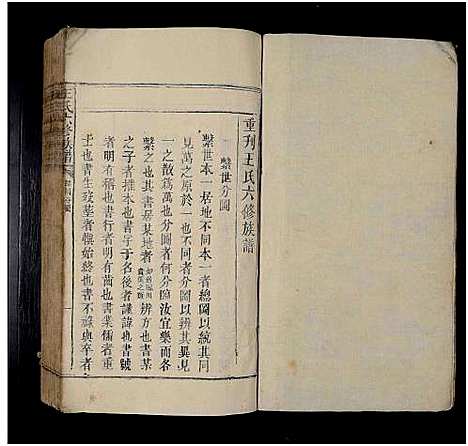 重刊王氏六修族譜
繫世分圖
繫世本一居地不同本一者總圖以統其同
萬之原於一也不同者分圖以辨其異見
一之散為萬也分圖者何分臨汝宜樂而各
繫之也其書居某地者辨方也書某
之子者推本也書字于名後者謹諱也書號
者明有稱也書行者明有業儒者重
士也書生歿葬者慎始終也書不祿與卒者